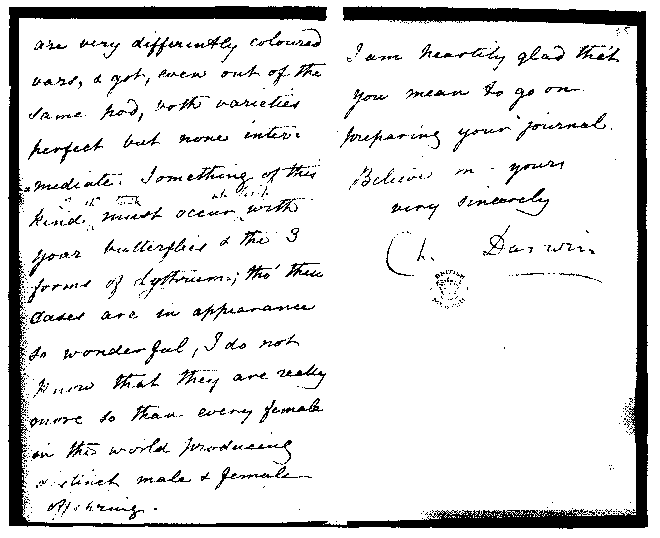 are very differently coloured
vars, & got, even out of the
same pod, both varieties
perfect but none inter-
mediate. Something of this
kind must occur with
your butterflies & the 3
forms of Lythrum; tho' these
cases are in appearance
so wonderful, I do not
know that they are really
more so than every female
in the world producing
distinct male & female
offspring.
I am heartily glad that
you mean to go on
preparing your journal.
Believe me yours
very sincerely
Ch. Darwin
BRITISH